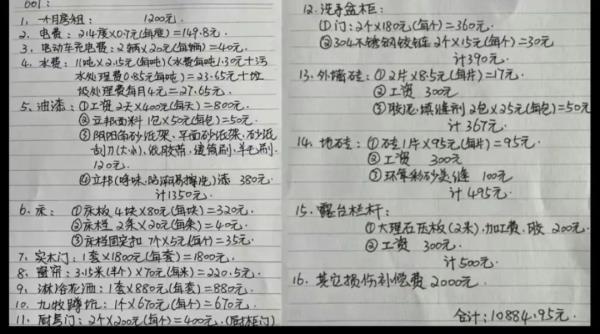 001:
1、一个月房租： 1200元.
2、电费：214度×0.7元(每度)=149.8元.
3、电动车充电费：2辆×20元(每辆)=40元.
4、水费：11吨×2.15元(每吨)(水费每吨1.30元+污
水处理费0.85元每吨)=23.65元+垃
圾处理费每月4元=27.65元.
5、油漆：①工资2天×400元(每天)=800元.
②立邦面料1包×50元(每包)=50元.
③阴阳角砂纸架、平面砂纸架、砂纸
刮刀(大小)、收胶带、滚筒刷、羊毛刷.
120元.
④立邦(呼吸.防潮易擦洗)漆 380元.
计1350元.
6、床： ①床板4块×80元(每块)=320元.
②床档2条×20元(每条)=40元.
③床档固定扣7个×5元(每个)=35元.
7、实木门：1套×1800元(每套)=1800元.
8、窗帘：3.15米(半个)×70元(每米)=220.5元.
9、淋浴花洒：1套×880元(每套)=880元.
10、九牧蹲坑：1个×670元(每个)=670元.
11、厨房门：2个×200元(每个)=400元.(厨柜门)
12、洗手盆柜：
①门：2个×180元(每个)=360元.
②304不锈钢铰链2个×15元(每个)=30元
计390元.
13、外墙砖：①2片×8.5元(每片)=17元.
②工资 300元
③胶泥.填缝剂2包×25元(每包)=50元
计367元.
14、地砖：①砖1片×95元(每片)=95元.
②工资 300元
③环氧彩砂美缝 100元
计495元.
15、露台栏杆：
①大理石压板(2米).加工费.胶 200元.
②工资 300元.
计500元.
16、其它损伤补偿费2000元.
合计：10884.95元.